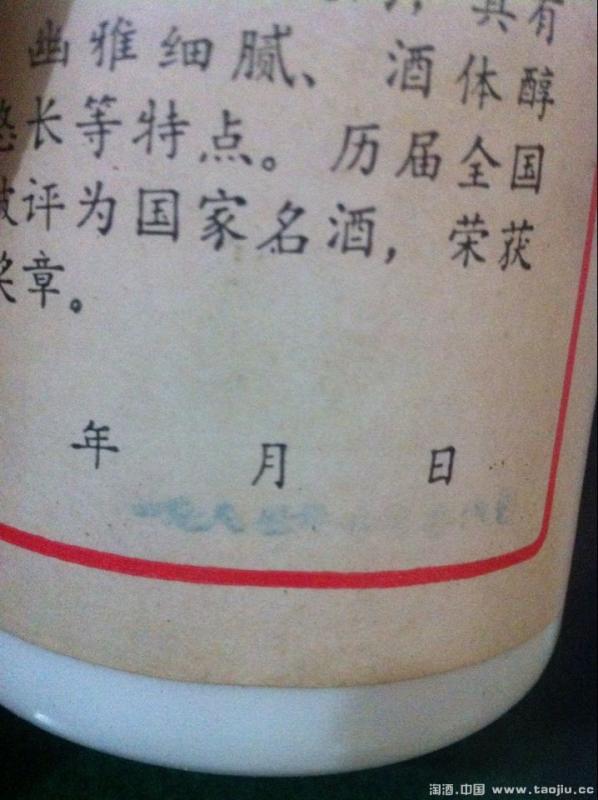 具有
幽雅细腻、酒体醇
悠长等特点。历届全国
被评为国家名酒，荣获
奖章。
年 月 日
淘酒.中国 www.taojiu.cc